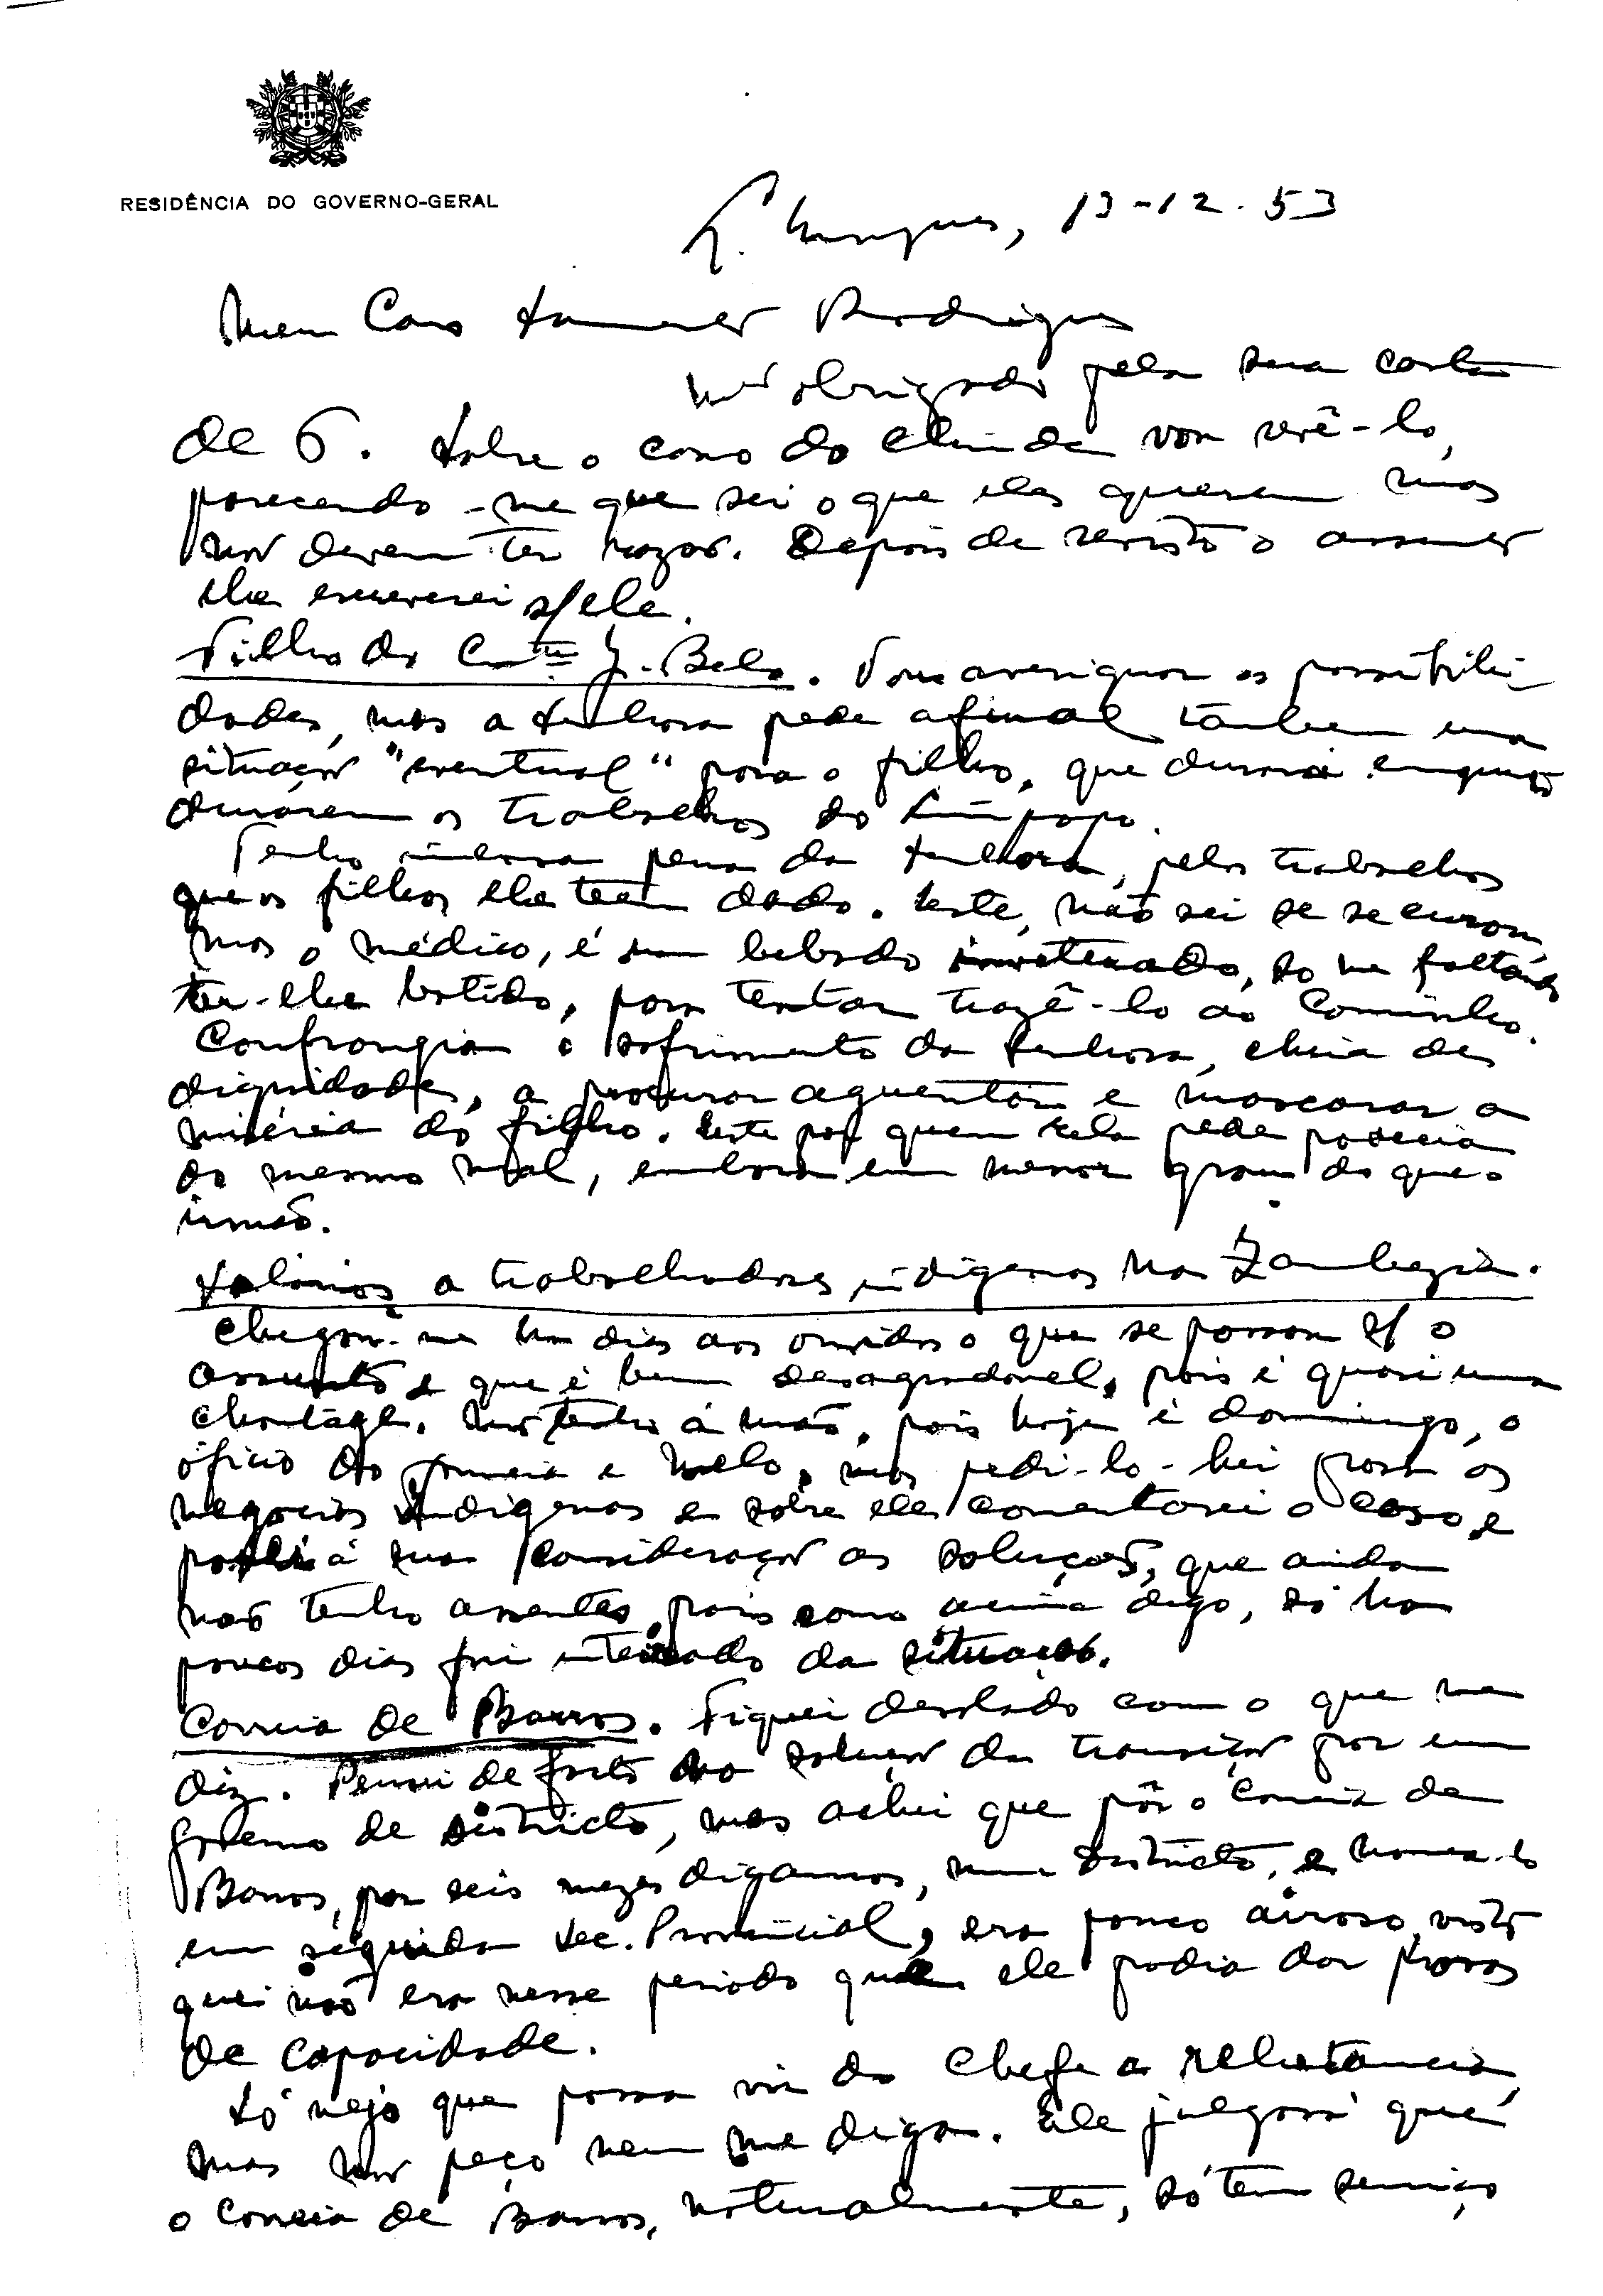 RESIDÊNCIA DO GOVERNO-GERAL
L. Marques, 13-12-53
Meu Caro Sarmento Rodrigues
obrigado pela sua carta
de 6. Sobre o caso do vou vê-lo,
parecendo-me que sei o que eles querem mas
não devem ter razão. Depois de revisto o assunto
lhe escreverei s/ ele.
Filho do J. Belo. Vou averiguar as possibili-
dades, mas a Senhora pede afinal também uma
situação "eventual" para o filho, que durará enquanto
durarem os trabalhos do Limpopo.
Tenho imensa pena da Senhora, pelos trabalhos
que os filhos lhe teem dado. Este, não sei se se curou,
mas o médico, é um bebado inveterado, só me faltando
ter-lhe batido, para tentar trazê-lo ao Caminho.
Confrangia o sofrimento da Senhora, cheia de
dignidade, a procurar aguentar e mascarar a
miséria do filho. Este por quem ela pede padecia
do mesmo mal, embora em menor grau do que o
irmão.
Salários a trabalhadores indigenas na Zambezia.
Chegou-me há dias aos ouvidos o que se passou s/ o
assunto e que é bem desagradavel, pois é quasi uma
chantage. Não tenho á mão, pois hoje é domingo, o
oficio do Gouveia e Melo, mas pedi-lo-hei para os
negocios Indigenas e sobre ele comentarei o caso e
á sua consideração as soluções, que ainda
não tenho assentes, pois como acima digo, só ha
poucos dias fui inteirado da situação.
Correia de Barros. Fiquei desolado com o que me
diz. Pensei de facto na solução da transição por um
governo de districto, mas achei que pôr o Correia de
Barros, por seis mezes digamos, num districto, e nomea-lo
em seguida Sec. Provincial, era pouco airoso, visto
que não era nesse periodo que ele podia dar provas
de capacidade.
Só vejo que possa vir do Chefe a relutancia,
mas não peço nem me diga. Ele julgará que
o Correia de Barros, naturalmente, só tem serviço